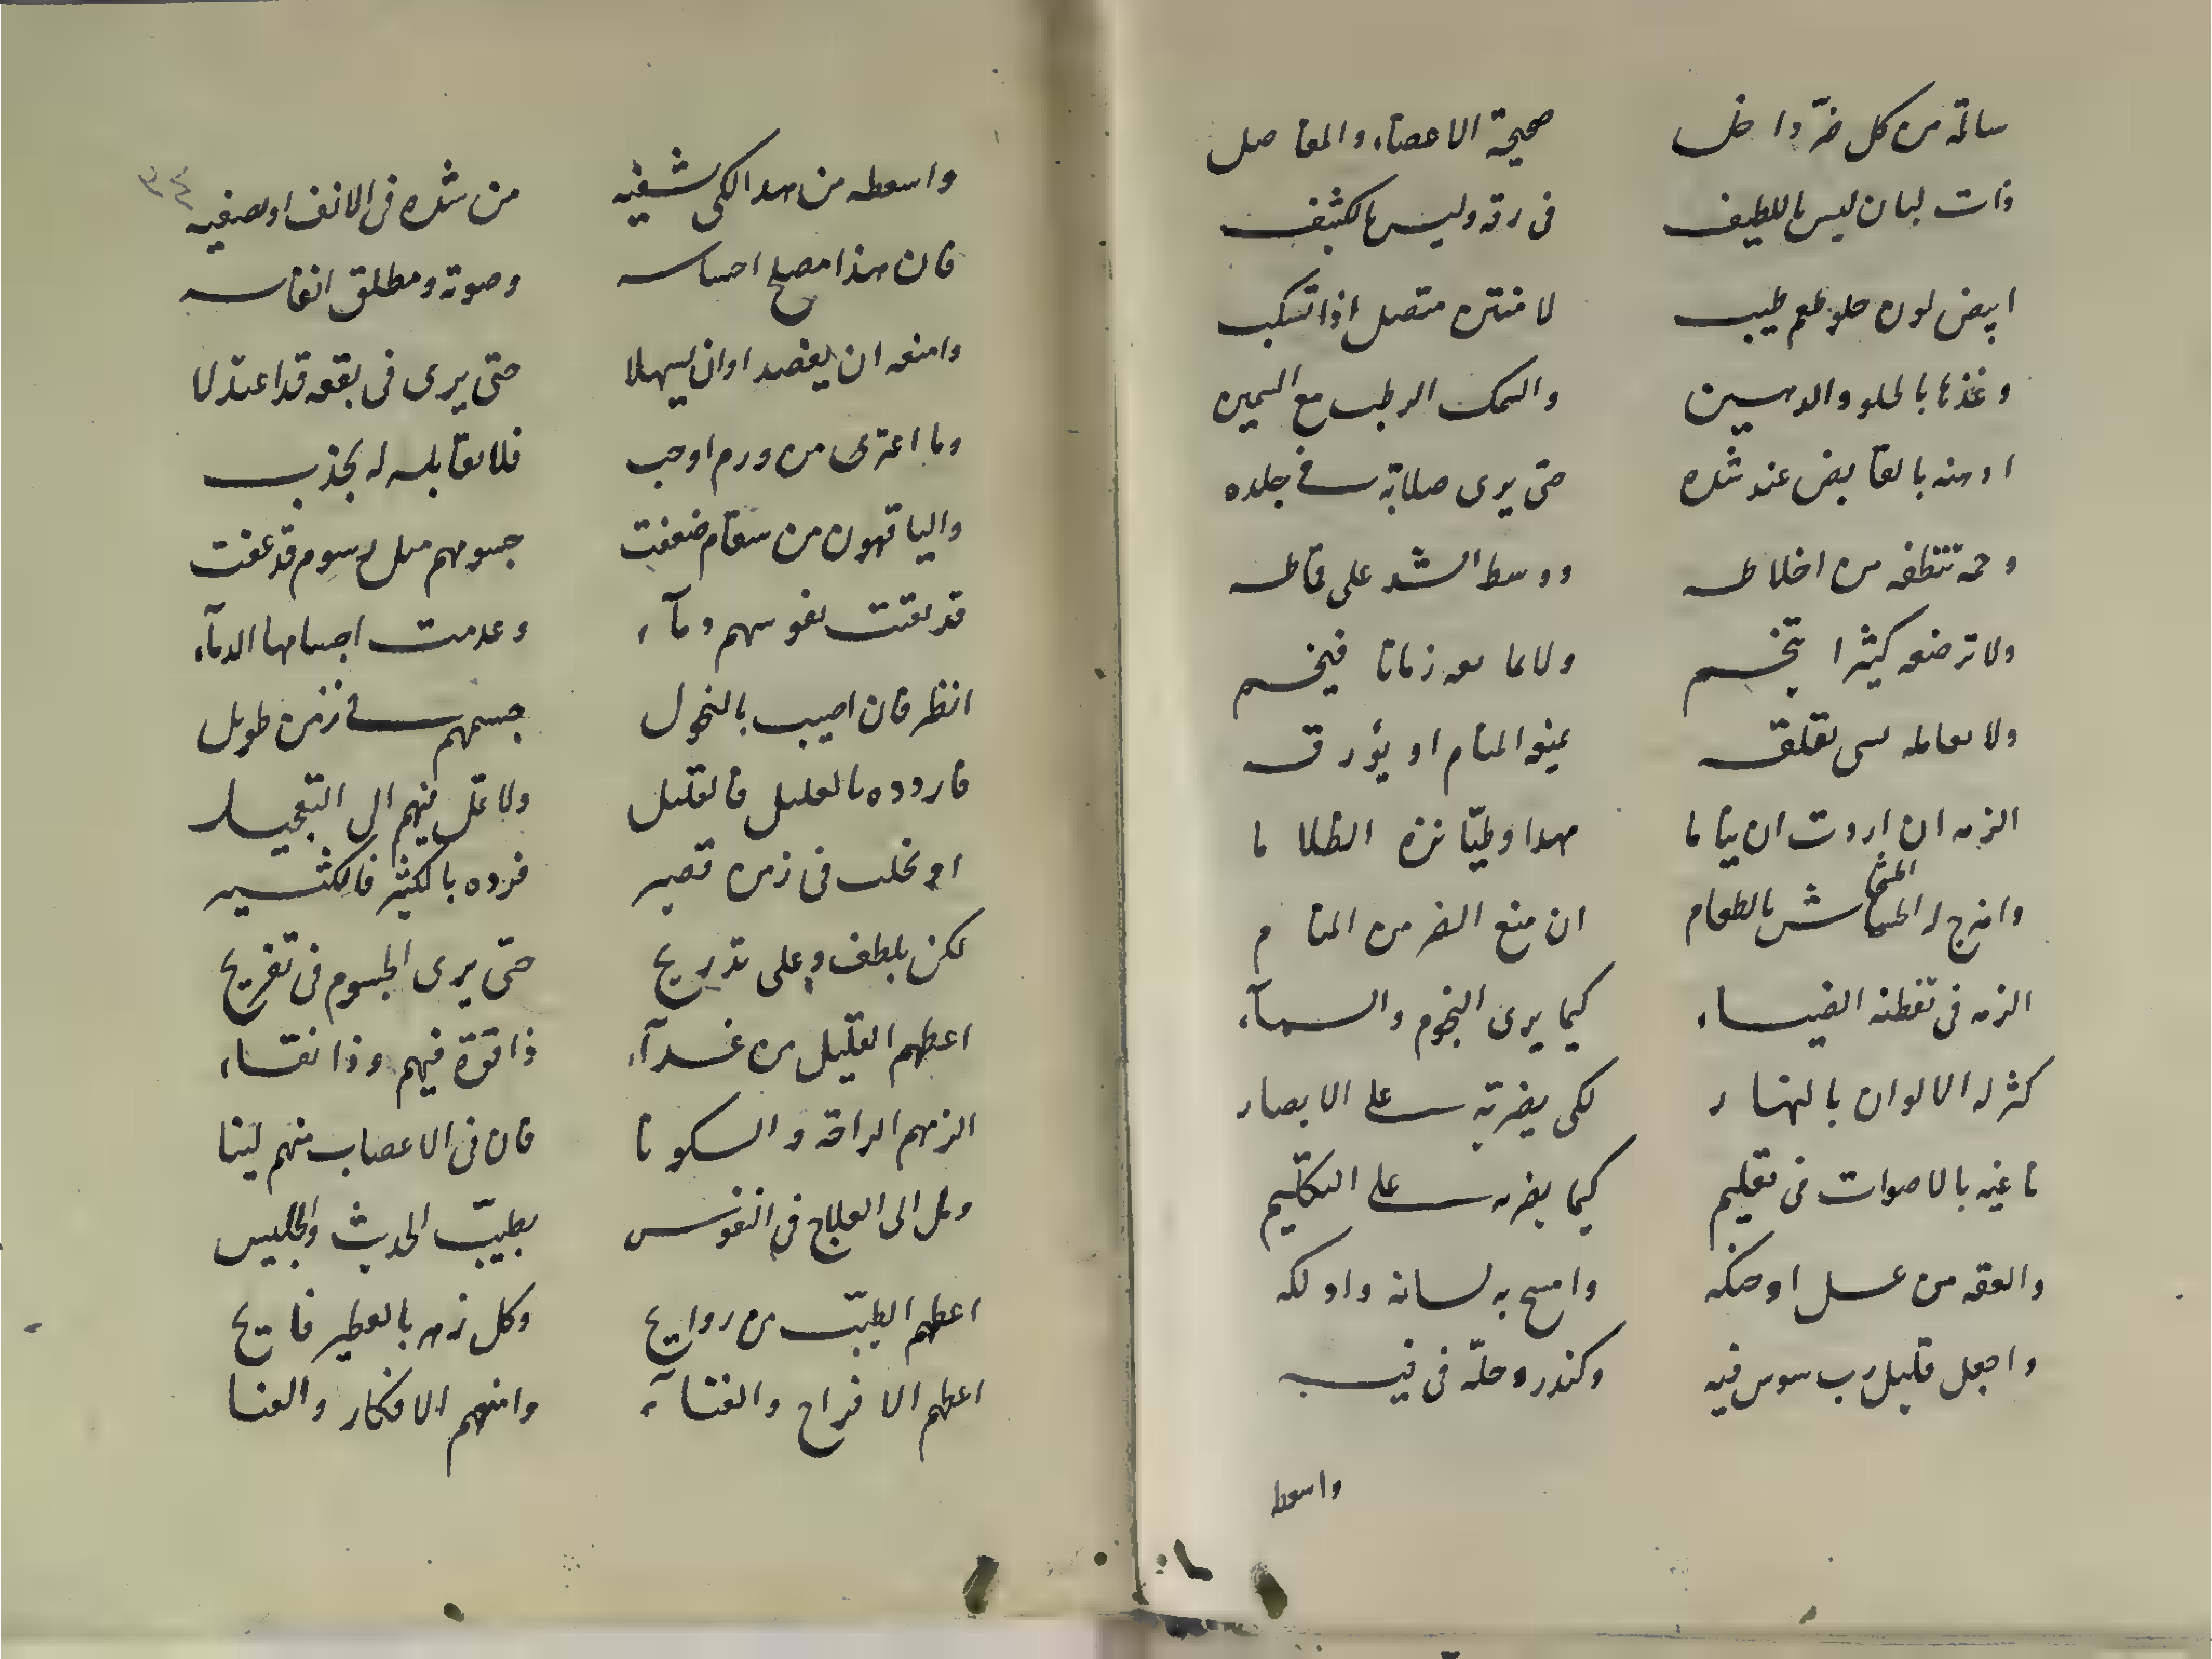 سالمة من كل ضرّ داخل صحيحة الاعضاء والمفاصل
ذات لبان ليس باللطيف فى رقة وليس بالكثيف
ابيض لون حلو طعم طيب لا منتن متصل اذا تسكب
وغذها بالحلو والدهين والسمك الرطب مع السمين
ادهنه بالقابض عند شده حتى يرى صلابة فى جلده
وحمه تنظفه من اخلاطه ووسط الشد على قاطه
ولا ترضعه كثيرا يتخم ولا زمانا فيخم
ولا تعامله بشى يقلق يمنع المنام او يؤرق
الزمه ان اردت ان يناما مهدا وطيّا نزه الظلاما
وامزج له الخشخاش بالطعام ان منع الضر من المنام
الزمه فى تفطنه الضياء كيما يرى النجوم والسماء
كثر له الالوان بالنهار لكى يضريه على الابصار
ناغيه بالاصوات فى تعليم كيما يضره على التكليم
والعقه من عسل او حنكه وامسح به لسانه وادلكه
واجعل قليل رب سوس فيه وكندر وحلّه فى فيه
واسعط
٣٤
واسعطه من هذا لكى تشفيه من شده فى الانف او تصفيه
فان هذا مصلح احساسه وصوته ومطلق انفاسه
وامنعه ان يفصد او ان يسهلا حتى يرى فى بقعه قد اعتدلا
وما اعترى من ورم او حب فلا تقابله له بجذب
والناقهون من سقام ضعفت جسومهم مثل رسوم قد عفت
قد بقيت نفوسهم دماء وعدمت اجسامها الدماء
انظر فان اصيب بالنحول جسمهم فى زمن طويل
فاردده بالقليل فالقليل ولا تمل فيهم الى التعجيل
او نحلت فى زمن قصير فزده بالكثير فالكثير
لكن بلطف وعلى تدريج حتى يرى الجسوم فى تفريج
اعطهم القليل من غداء ذا قوة فيهم وذا نقاء
الزمهم الراحة والسكونا فان فى الاعصاب منهم لينا
ومل الى العلاج فى النفوس بطيّب الحديث والجليس
اعطهم الطيّب من روايح وكل زهر بالعطير فايح
اعطهم الافراح والغناء وامنهم الافكار والعنا